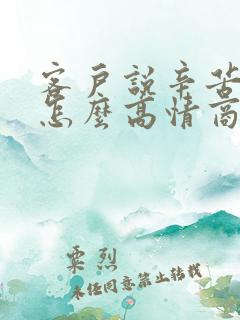 客戶說辛苦
怎麼高情商
粟烈
未经同意禁止转载